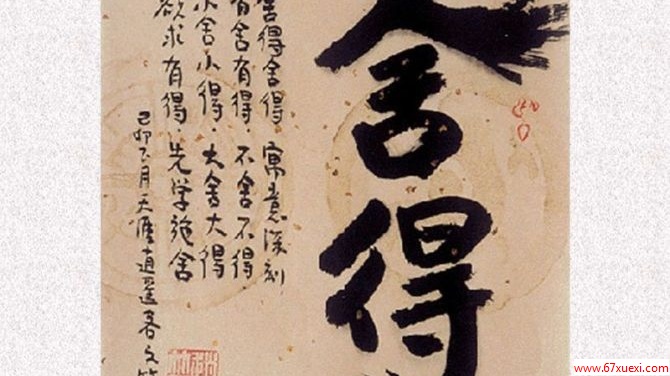 舍得
舍得舍得 寓意深刻
有舍有得·不舍不得
小舍小得·大舍大得
欲求有得·先学施舍
己卯 月天涯逍遥客
www.67xuexi.com